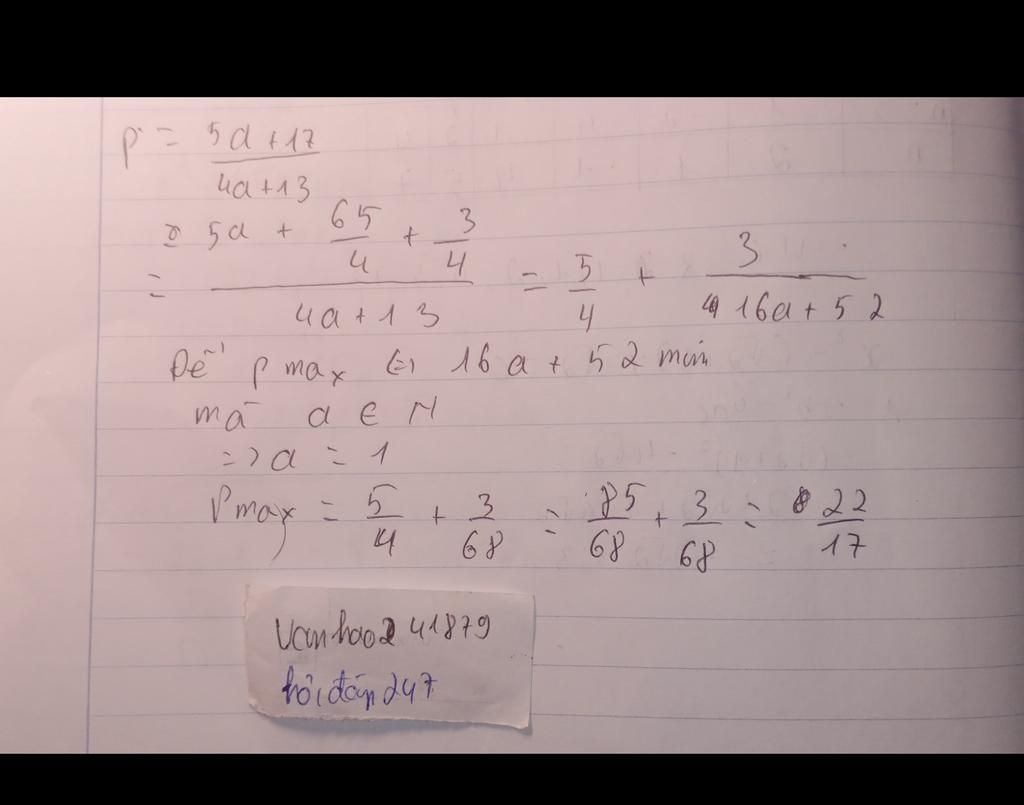 P = \frac{5a+17}{4a+13}
= \frac{5a + \frac{65}{4} + \frac{3}{4}}{4a+13} = \frac{5}{4} + \frac{3}{16a+52}
Để P max <=> 16a + 52 min
mà a ∈ N
=> a = 1
Pmax = \frac{5}{4} + \frac{3}{68} = \frac{85}{68} + \frac{3}{68} = \frac{22}{17}
Vanhao241879
hỏi đáp 247